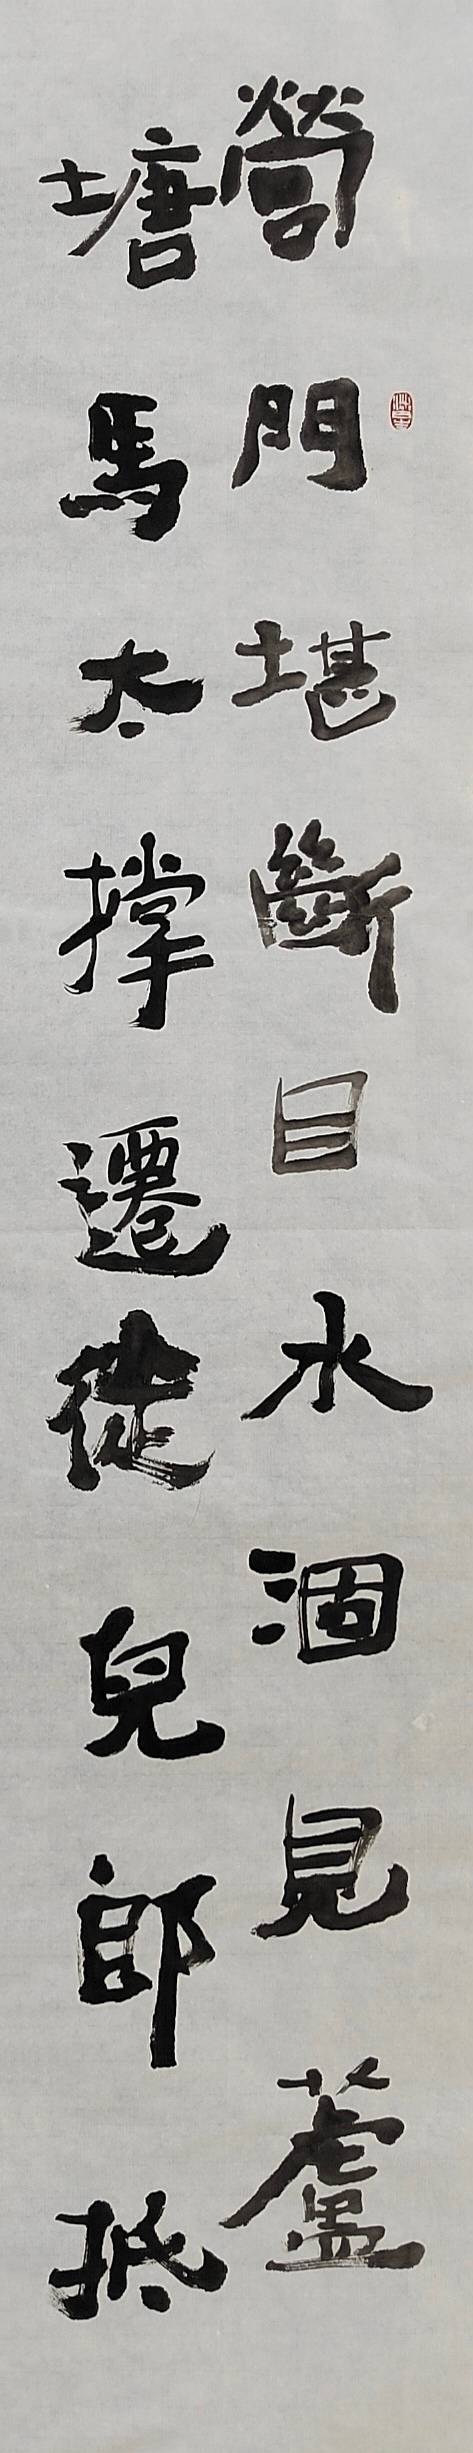 營門堪斷目水涸見蘆
塘馬太撑遷徒兒郎抵